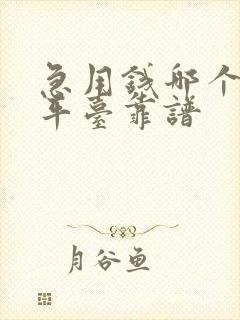 急用钱哪个
平臺靠譜
月谷鱼